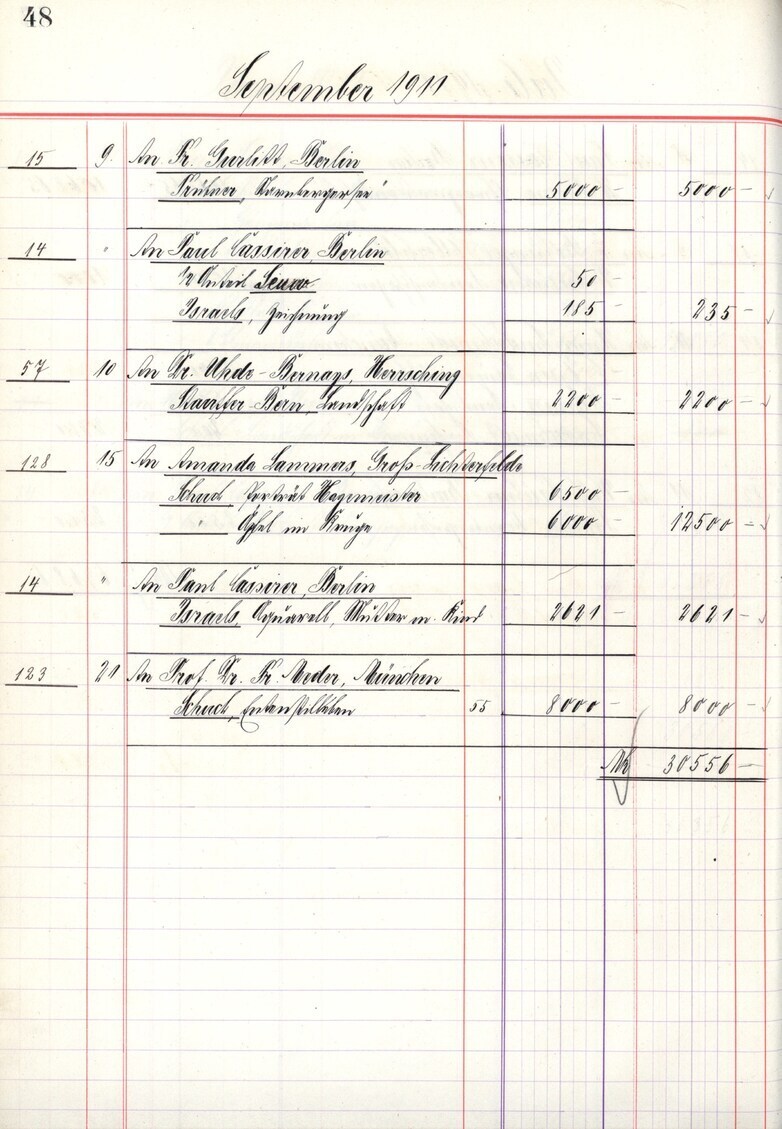 48
September 1911
15 9. An Fr. Gurlitt, Berlin
Trübner, Starnbergersee" 5000 – 5000 –
14 " An Paul Cassirer, Berlin
1/2 Anteil 50 –
Israels, Zeichnung 185 – 235 –
57 10 An Dr. Uhde-Bernays, Herrsching
Stauffer-Bern, Landschaft 2200 – 2200 –
128 15 An Amanda Lammers, Groß-Lichterfelde
Schuch Porträt Hagemeister 6500 –
" Äpfel im Kruge 6000 – 12500 –
14 " An Paul Cassirer, Berlin
Israels Aquarell, Mutter m. Kind 2621 – 2621 –
123 21 An Prof. Dr. Fr. Meder, München
Schuch, Entenstilleben 55 8000 – 8000 –
Mk 30556 –